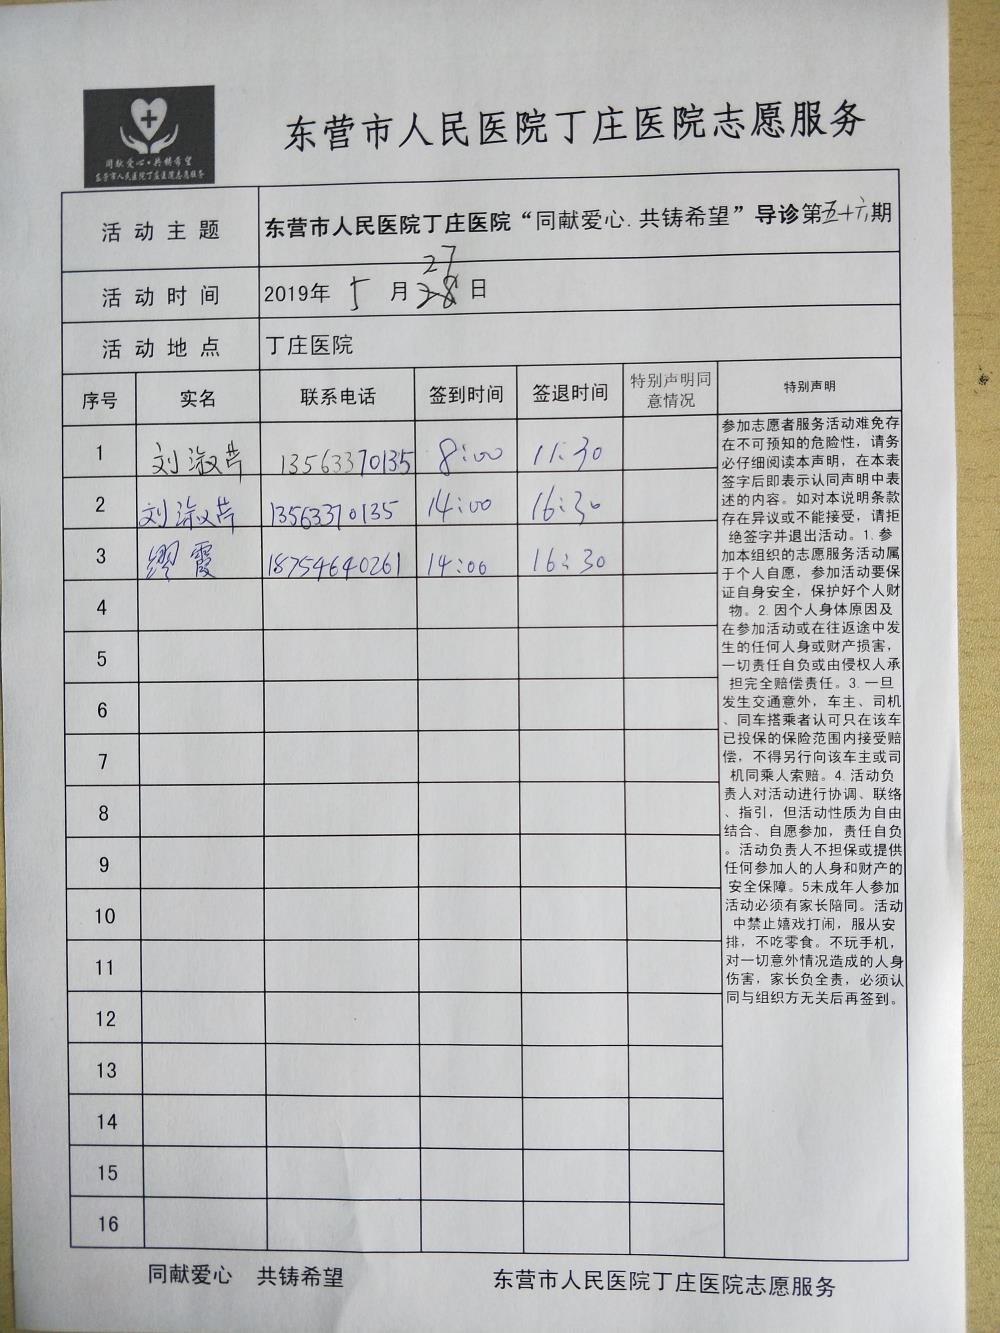 同献爱心·共铸希望
东营市人民医院丁庄医院志愿服务
东营市人民医院丁庄医院志愿服务
活动主题 东营市人民医院丁庄医院“同献爱心.共铸希望”导诊第五十六期
27
活动时间 2019年 5 月 28 日
活动地点 丁庄医院
序号 实名 联系电话 签到时间 签退时间 特别声明同意情况 特别声明
1 刘淑芹 13563370135 8:00 11:30
2 刘淑芹 13563370135 14:00 16:30
3 缪霞 18754640261 14:00 16:30
4
5
6
7
8
9
10
11
12
13
14
15
16
参加志愿者服务活动难免存
在不可预知的危险性，请务
必仔细阅读本声明，在本表
签字后即表示认同声明中表
述的内容。如对本说明条款
存在异议或不能接受，请拒
绝签字并退出活动。1.参
加本组织的志愿服务活动属
于个人自愿，参加活动要保
证自身安全，保护好个人财
物。2.因个人身体原因及
在参加活动或在往返途中发
生的任何人身或财产损害，
一切责任自负或由侵权人承
担完全赔偿责任。3.一旦
发生交通意外，车主、司机
、同车搭乘者认可只在该车
已投保的保险范围内接受赔
偿，不得另行向该车主或司
机同乘人索赔。4.活动负
责人对活动进行协调、联络
、指引，但活动性质为自由
结合、自愿参加，责任自负
。活动负责人不担保或提供
任何参加人的人身和财产的
安全保障。5未成年人参加
活动必须有家长陪同。活动
中禁止嬉戏打闹，服从安
排，不吃零食。不玩手机，
对一切意外情况造成的人身
伤害，家长负全责，必须认
同与组织方无关后再签到。
同献爱心 共铸希望 东营市人民医院丁庄医院志愿服务